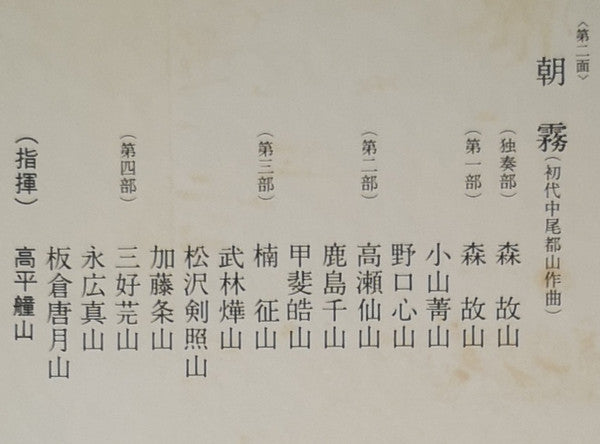 〈第二面〉
朝霧(初代中尾都山作曲)
(独奏部) 森 故山
(第一部) 森 故山
小山菁山
野口心山
(第二部) 高瀬仙山
鹿島千山
甲斐皓山
(第三部) 楠 征山
武林燁山
松沢剣照山
加藤条山
(第四部) 三好芫山
永広真山
板倉唐月山
(指揮) 高平艟山